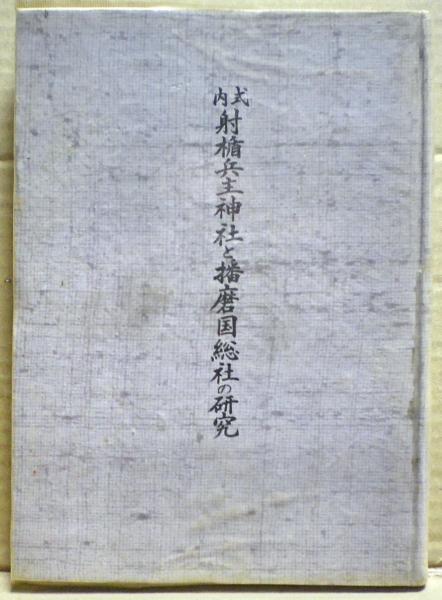 式内
射楯兵主神社と播磨国総社の研究